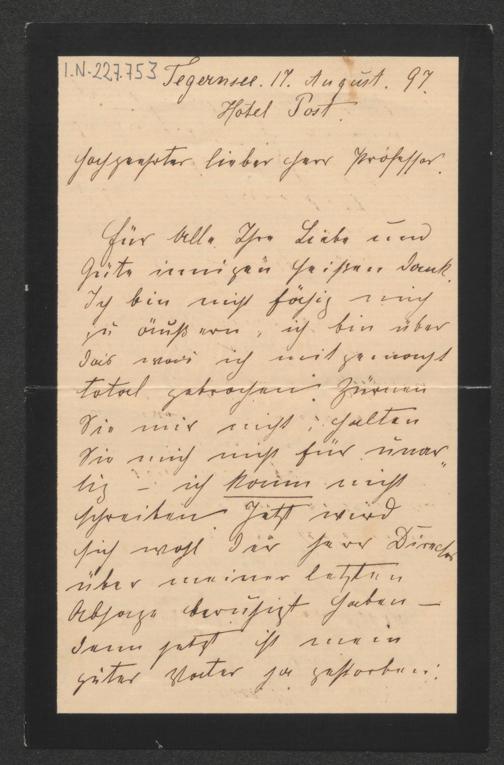 I.N. 227.753
Tegernsee. 17. August. 97.
Hotel Post.
Hochgeehrter lieber Herr Professor.
Für Alle Ihre Liebe und
Güte innigen heißen Dank.
Ich bin nicht fähig mich
zu äußern, ich bin über
das was ich mitgemacht
total gebrochen. Zürnen
Sie mir nicht; halten
Sie mich nicht für unar-
tig – ich kann nicht
schreiben. Jetzt wird
sich wohl der Herr Director
über meiner letzten
Absage beruhigt haben –
denn jetzt ist mein
guter Vater ja gestorben!